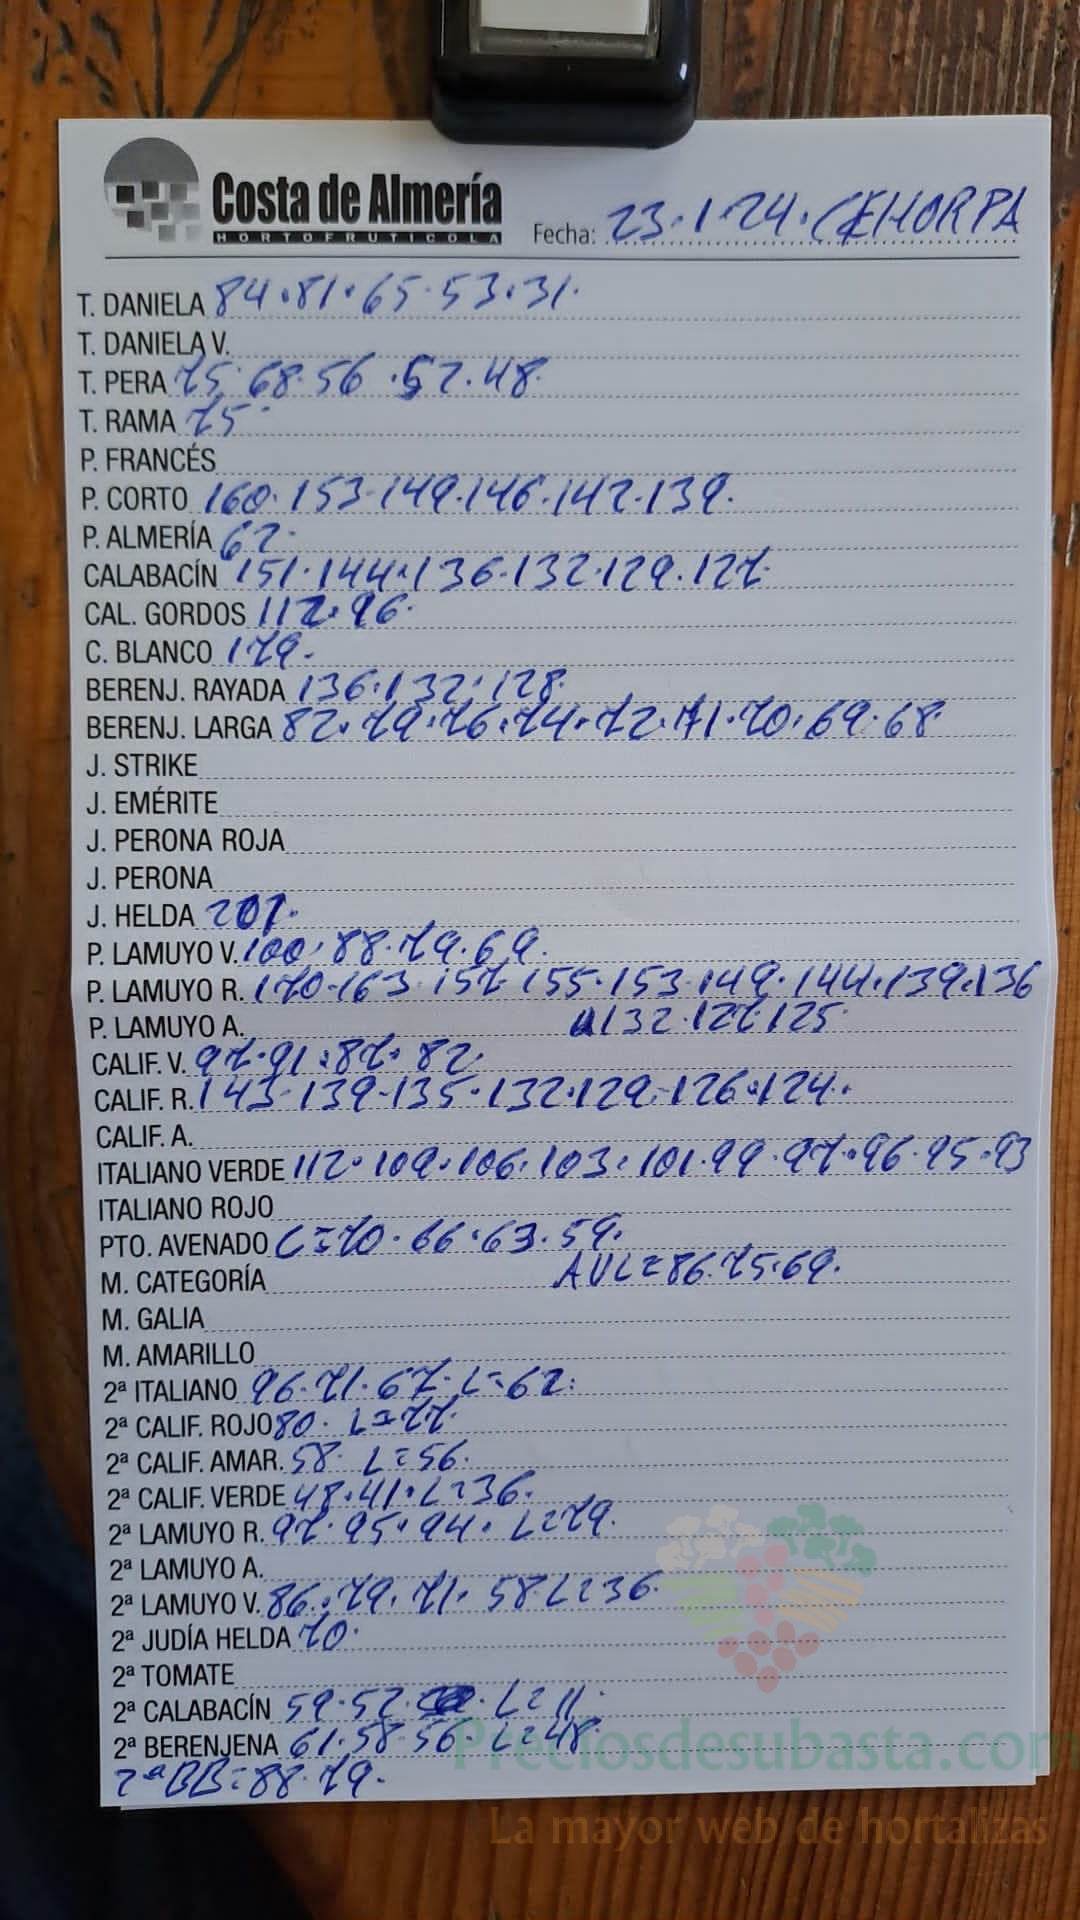 Costa de Almería
HORTOFRUTICOLA
Fecha: 23.1.24. CEHORPA
T. DANIELA 84.81.65.53.31.
T. DANIELA V.
T. PERA 75.68.56.52.48.
T. RAMA 75.
P. FRANCÉS
P. CORTO 160.153.149.146.142.139.
P. ALMERÍA 62.
CALABACÍN 151.144.136.132.129.127.
CAL. GORDOS 112.96.
C. BLANCO 179.
BERENJ. RAYADA 136.132.128.
BERENJ. LARGA 82.79.76.74.72.71.70.69.68.
J. STRIKE
J. EMÉRITE
J. PERONA ROJA
J. PERONA
J. HELDA 207.
P. LAMUYO V. 100.88.79.69.
P. LAMUYO R. 170.163.157.155.153.149.144.139.136
P. LAMUYO A. 132.127.125.
CALIF. V. 97.91.87.82.
CALIF. R. 143.139.135.132.129.126.124.
CALIF. A.
ITALIANO VERDE 112.109.106.103.101.99.97.96.95.93
ITALIANO ROJO
PTO. AVENADO C=70.66.63.59.
M. CATEGORÍA AVL=86.75.69.
M. GALIA
M. AMARILLO
2ª ITALIANO 96.71.67.L=62.
2ª CALIF. ROJO 80. L=77.
2ª CALIF. AMAR. 58. L=56.
2ª CALIF. VERDE 48.41.L=36.
2ª LAMUYO R. 97.95.94. L=79.
2ª LAMUYO A.
2ª LAMUYO V. 86.79.71.58.L=36.
2ª JUDÍA HELDA 70.
2ª TOMATE
2ª CALABACÍN 59.52. L=11.
2ª BERENJENA 61.58.56.L=48.
2ªBB=88.79.
Preciosdesubasta.com
La mayor web de hortalizas